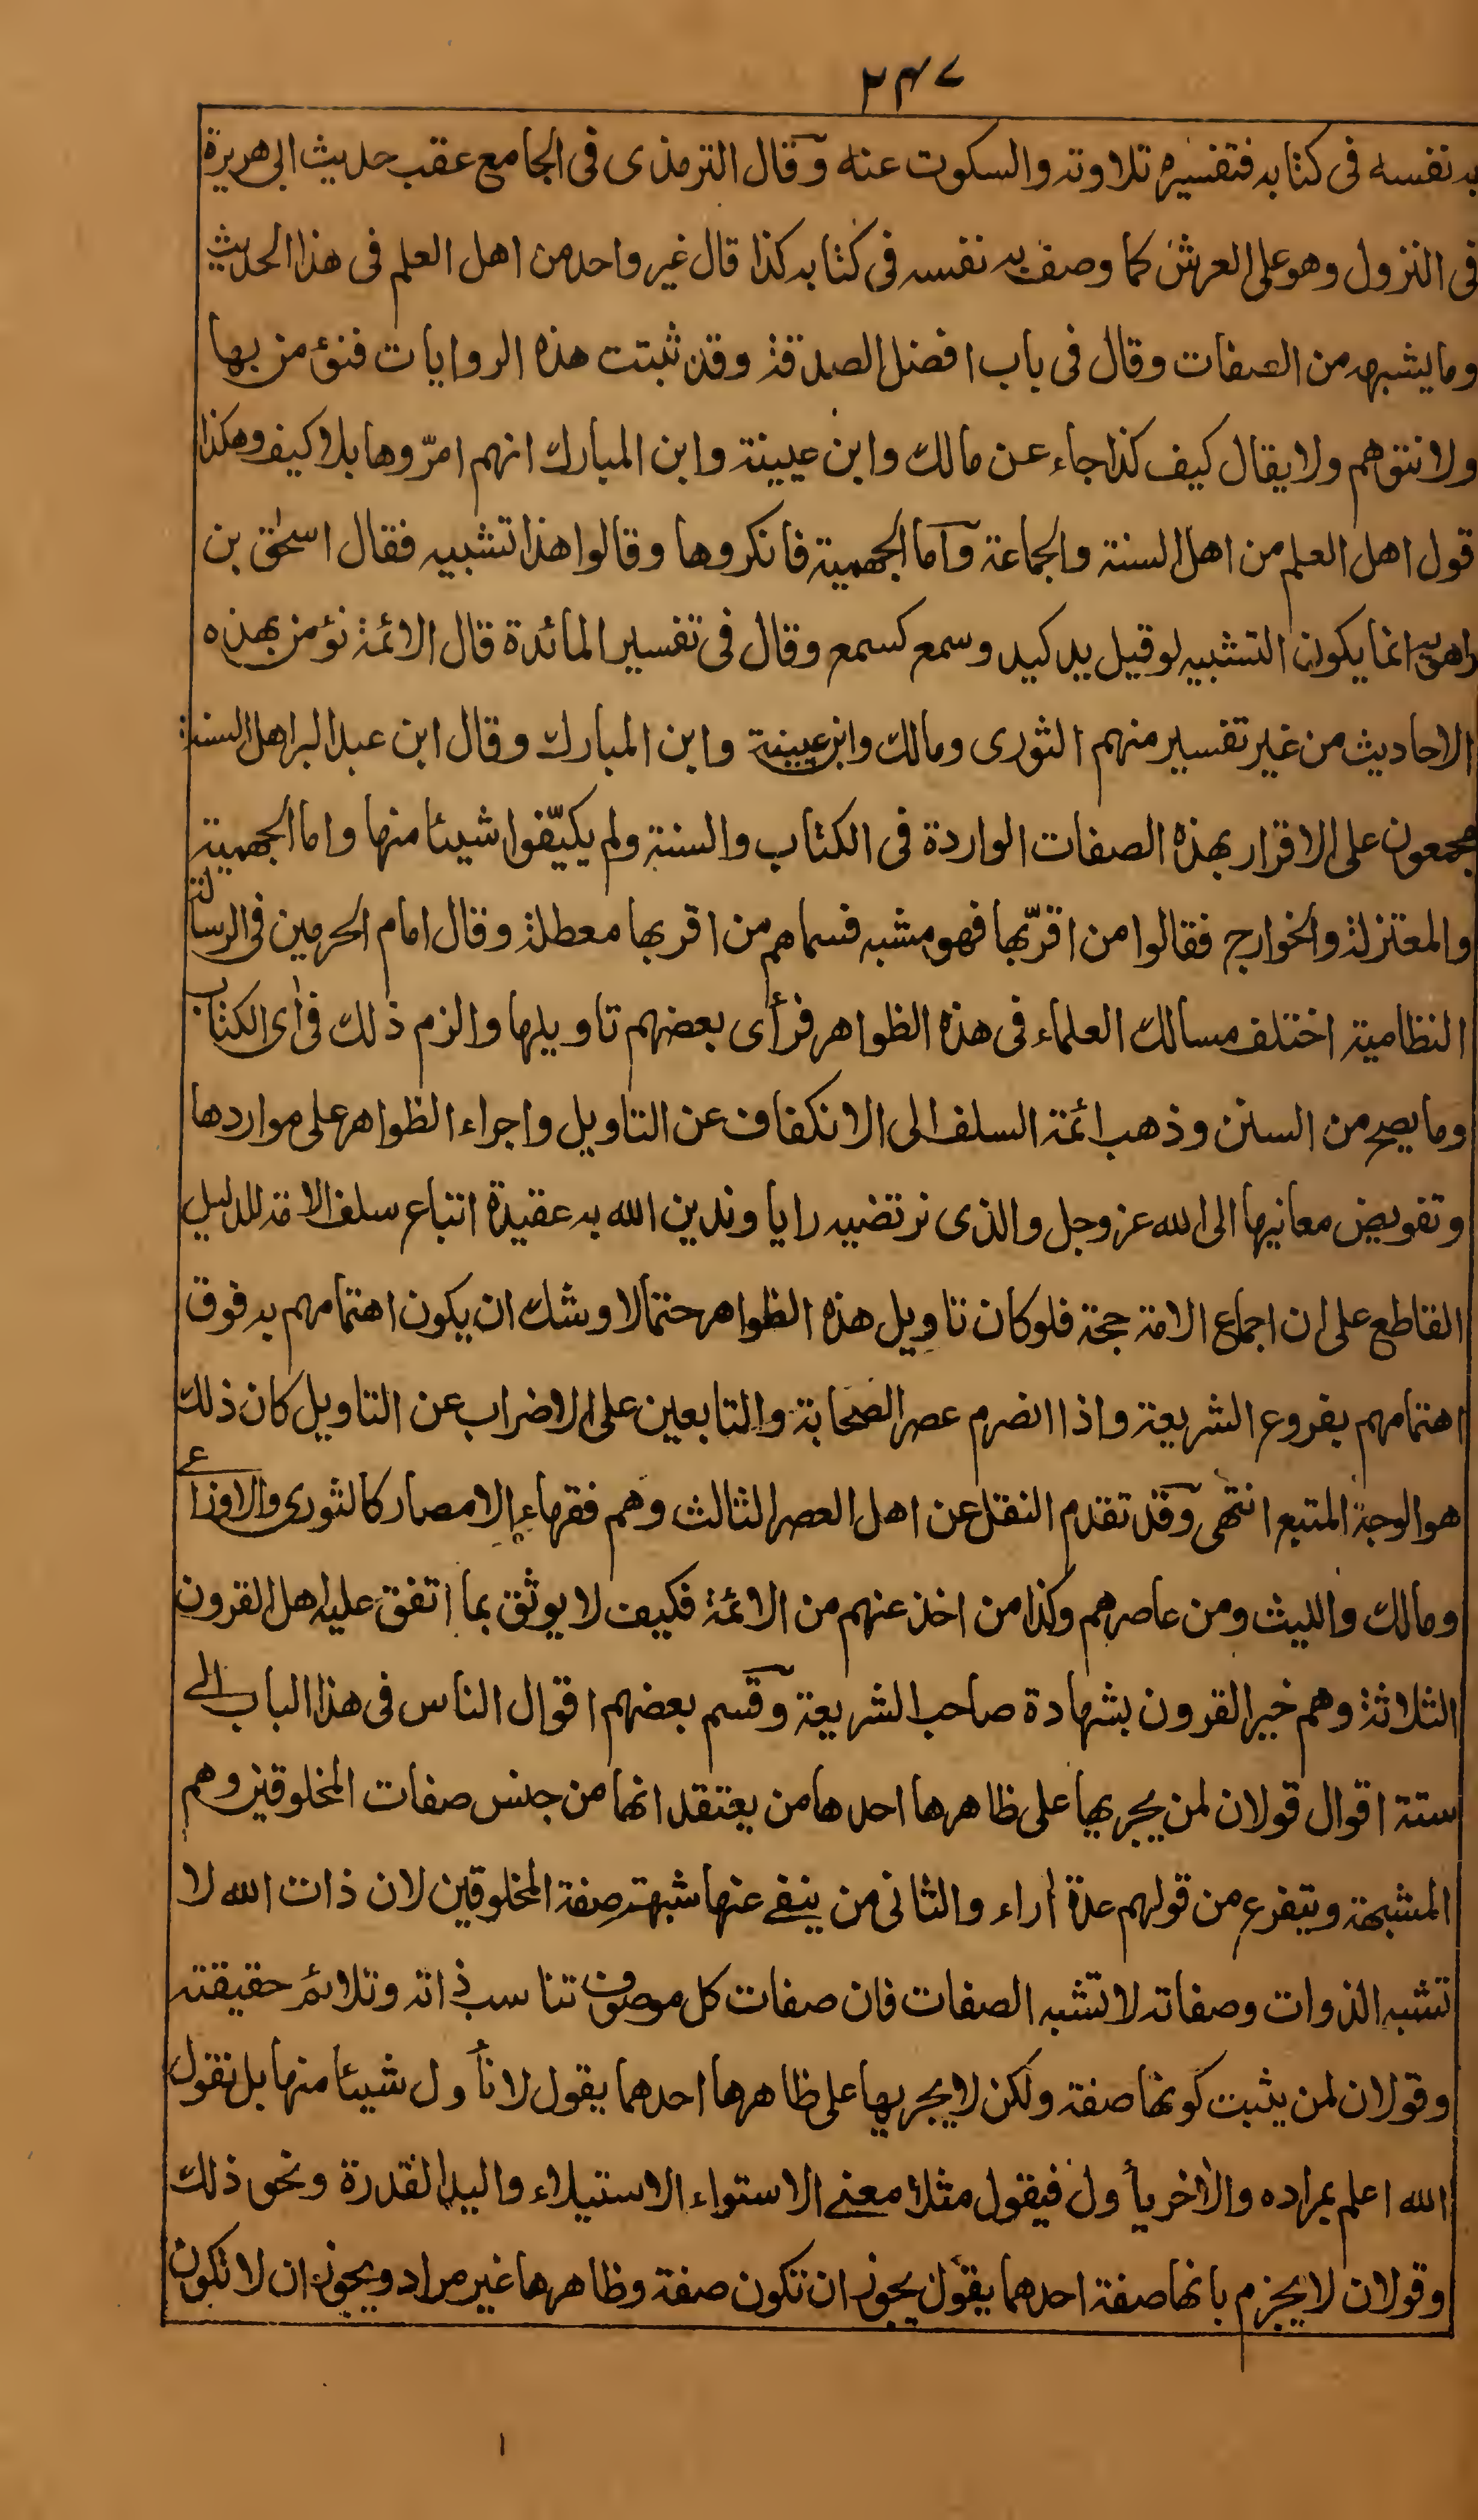 ٢٤٧
به نفسه فى كتابه فتفسيره تلاوته والسكوت عنه وقال الترمذى فى الجامع عقب حديث ابى هريرة
فى النزول وهو على العرش كما وصف به نفسه فى كتابه كذا قال غير واحد من اهل العلم فى هذا الحديث
وما يشبهه من الصفات وقال فى باب افضل الصدقة وقد ثبتت هذه الروايات فنؤمن بها
ولا نتوهم ولا يقال كيف كذا جاء عن مالك وابن عيينة وابن المبارك انهم امرّوها بلا كيف وهكذا
قول اهل العلم من اهل السنة والجماعة وآما الجهمية فانكروها وقالوا هذا تشبيه فقال اسحٰق بن
راهويه انما يكون التشبيه لو قيل يد كيد وسمع كسمع وقال فى تفسير المائدة قال الائمة نؤمن بهذه
الاحاديث من غير تفسير منهم الثورى ومالك وابن عيينة وابن المبارك وقال ابن عبد البر اهل السنة
مجمعون على الاقرار بهذه الصفات الواردة فى الكتاب والسنة ولم يكيّفوا شيئا منها واما الجهمية
والمعتزلة والخوارج فقالوا من اقرّبها فهو مشبه فسماهم من اقر بها معطلة وقال امام الحرمين فى الرسالة
النظامية اختلف مسالك العلماء فى هذه الظواهر فرأى بعضهم تاويلها والزم ذلك فى اٰى الكتاب
وما يصح من السنن وذهب ائمة السلف الى الانكفاف عن التاويل واجراء الظواهر على مواردها
وتفويض معانيها الى الله عز وجل والذى نرتضيه رايا وندين الله به عقيدة اتباع سلف الامة للدليل
القاطع على ان اجماع الامة حجة فلو كان تاويل هذه الظواهر حتما لاوشك ان يكون اهتمامهم به فوق
اهتمامهم بفروع الشريعة واذا انصرم عصر الصحابة والتابعين على الاضراب عن التاويل كان ذلك
هو الوجة المتبع انتهى وقد تقدم النقل عن اهل العصر الثالث وهم فقهاء الامصار كالثورى والاوزاعے
ومالك والليث ومن عاصرهم وكذا من اخذ عنهم من الائمة فكيف لا يوثق بما اتفق عليه اهل القرون
الثلاثة وهم خير القرون بشهادة صاحب الشريعة وقسم بعضهم اقوال الناس فى هذا الباب الے
ستة اقوال قولان لمن يجريها على ظاهرها احدها من يعتقد انها من جنس صفات المخلوقين وهم
المشبهة ويتفرع من قولهم عدة اراء والثانى من ينفے عنها شبهة صفة المخلوقين لان ذات الله لا
تشبه الذوات وصفاته لا تشبه الصفات فان صفات كل موصوف تناسب ذاته وتلائم حقيقته
وقولان لمن يثبت كونها صفة ولكن لا يجريها على ظاهرها احدهما يقول لا نأول شيئا منها بل نقول
الله اعلم بمراده والاٰخر يأول فيقول مثلا معنے الاستواء الاستيلاء واليد القدرة ونحو ذلك
وقولان لا يجزم بانها صفة احدهما يقول يجوز ان تكون صفة وظاهرها غير مراد ويجوز ان لا تكون